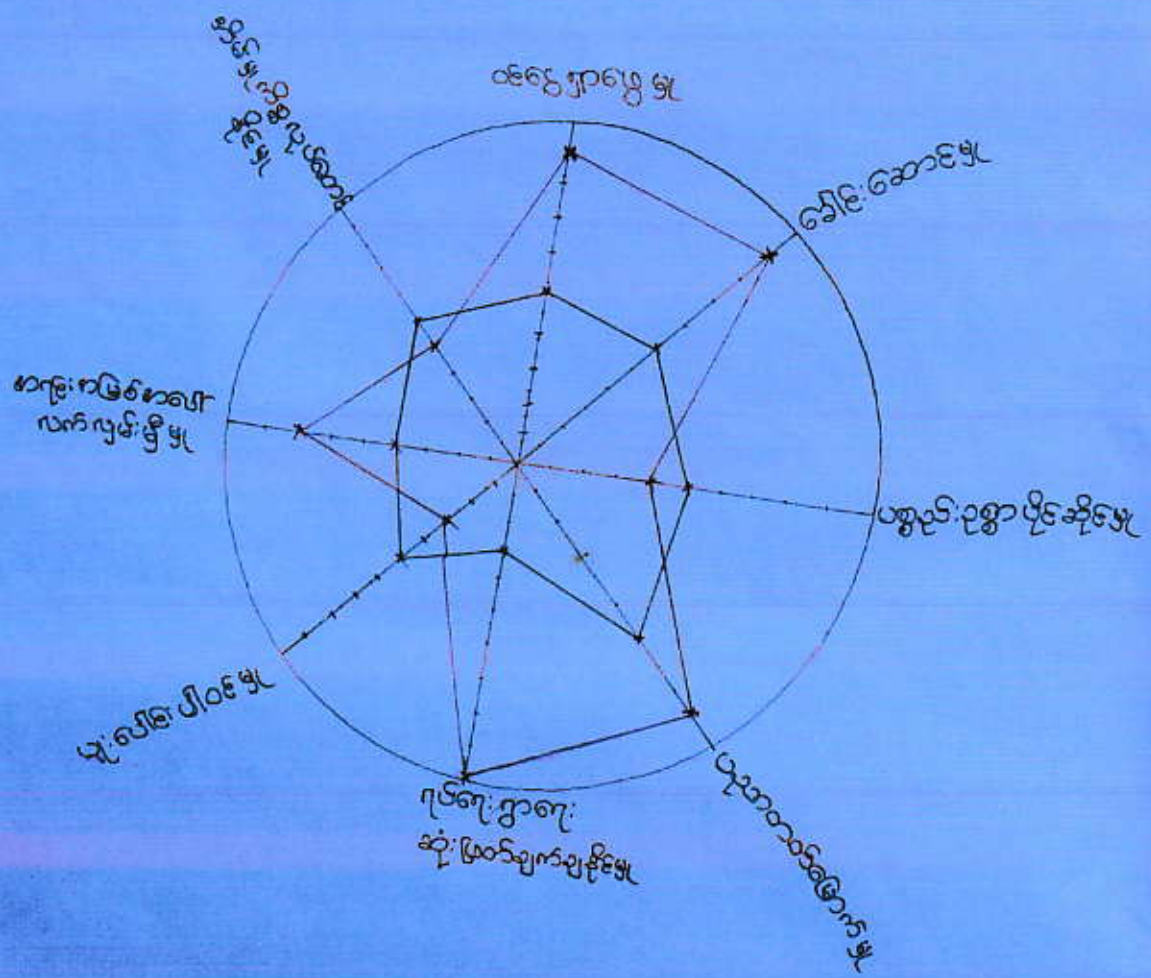 ဝင်ငွေရှာဖွေမှု
ခေါင်းဆောင်မှု
ပစ္စည်းဥစ္စာပိုင်ဆိုင်မှု
ပညာတတ်မြောက်မှု
ရပ်ရေးရွာရေး
ဆုံးဖြတ်ချက်ချနိုင်မှု
ပူးပေါင်းပါဝင်မှု
လက်လှမ်းမှီမှု
အိမ်မှုကိစ္စလုပ်ဆောင်
နိုင်မှု